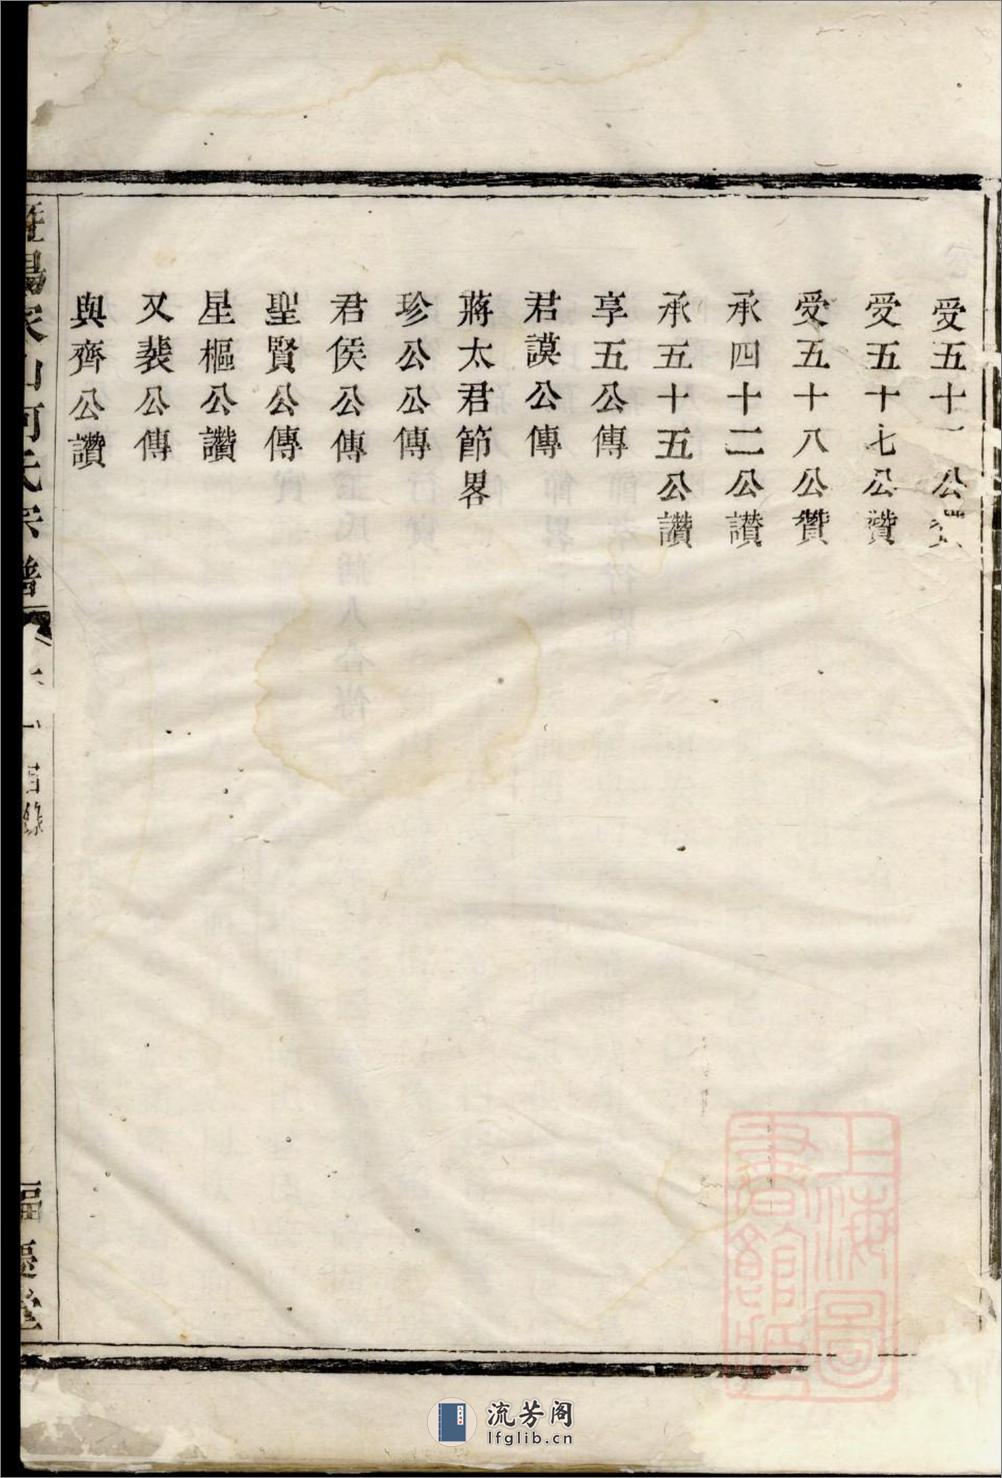 受五十一公
受五十七公讚
受五十八公贊
承四十二公讃
承五十五公讚
享五公傳
君謨公傳
蔣太君節畧
珍公公傳
君侯公傳
聖賢公傳
星樞公讚
又裴公傳
與齊公讚
暨陽 山何氏宗譜
目錄
福慶堂
上海圖書館藏
流芳阁
lfglib.cn